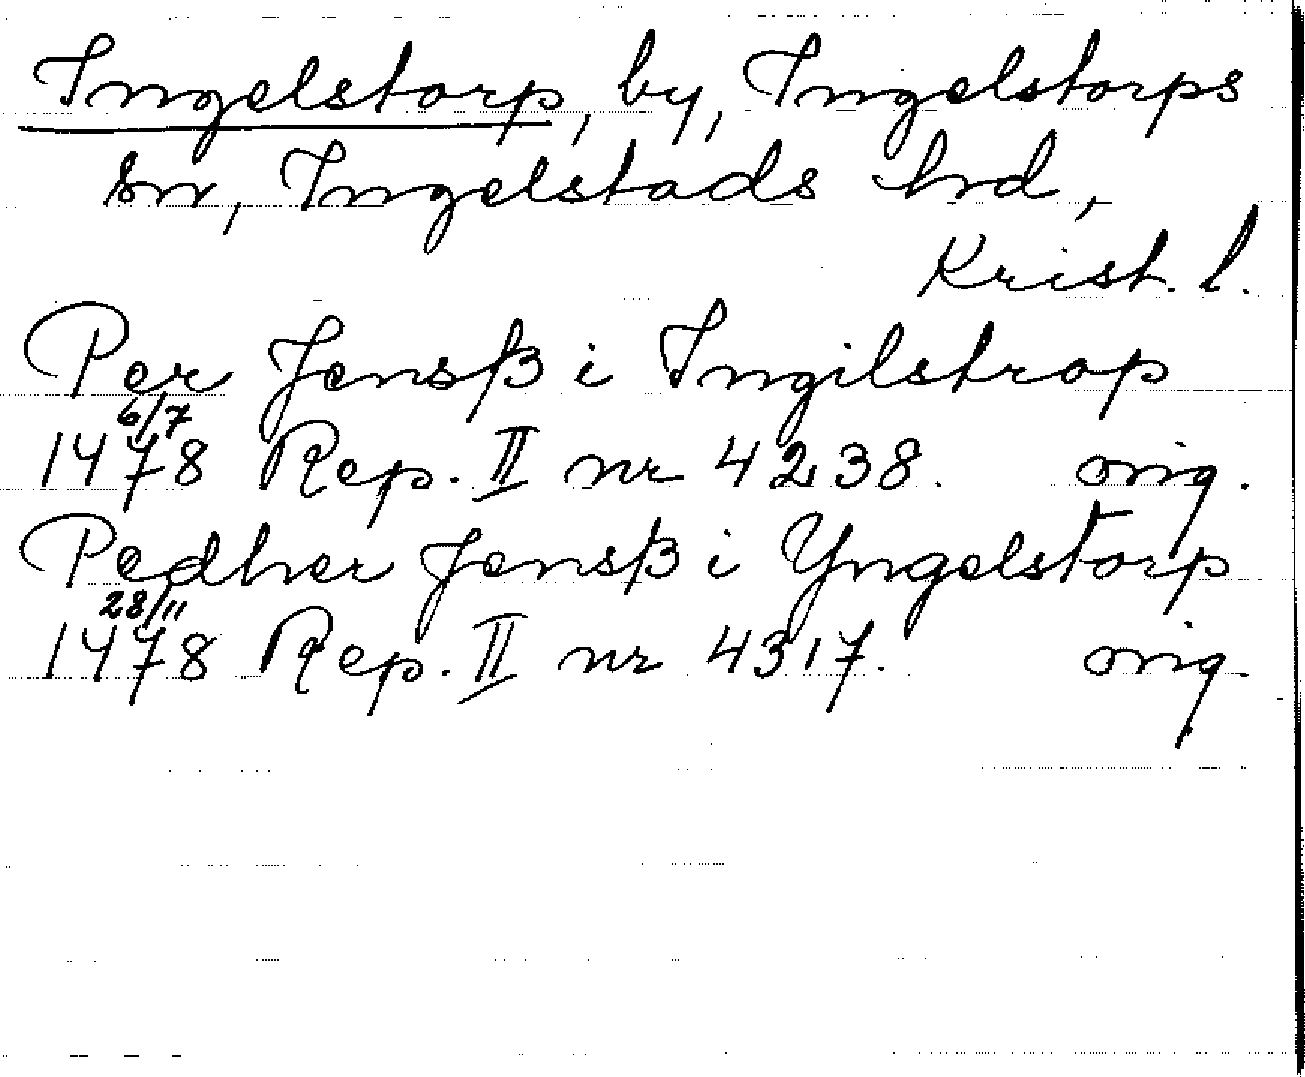 Ingelstorp, by, Ingelstorps
sn, Ingelstads hrd,
Krist. l.
Per Jensß i Ingilstrop
6/7
1478 Rep. II nr 4238. orig.
Pedher Jensß i Yngelstorp
28/11
1478 Rep. II nr 4317. orig.